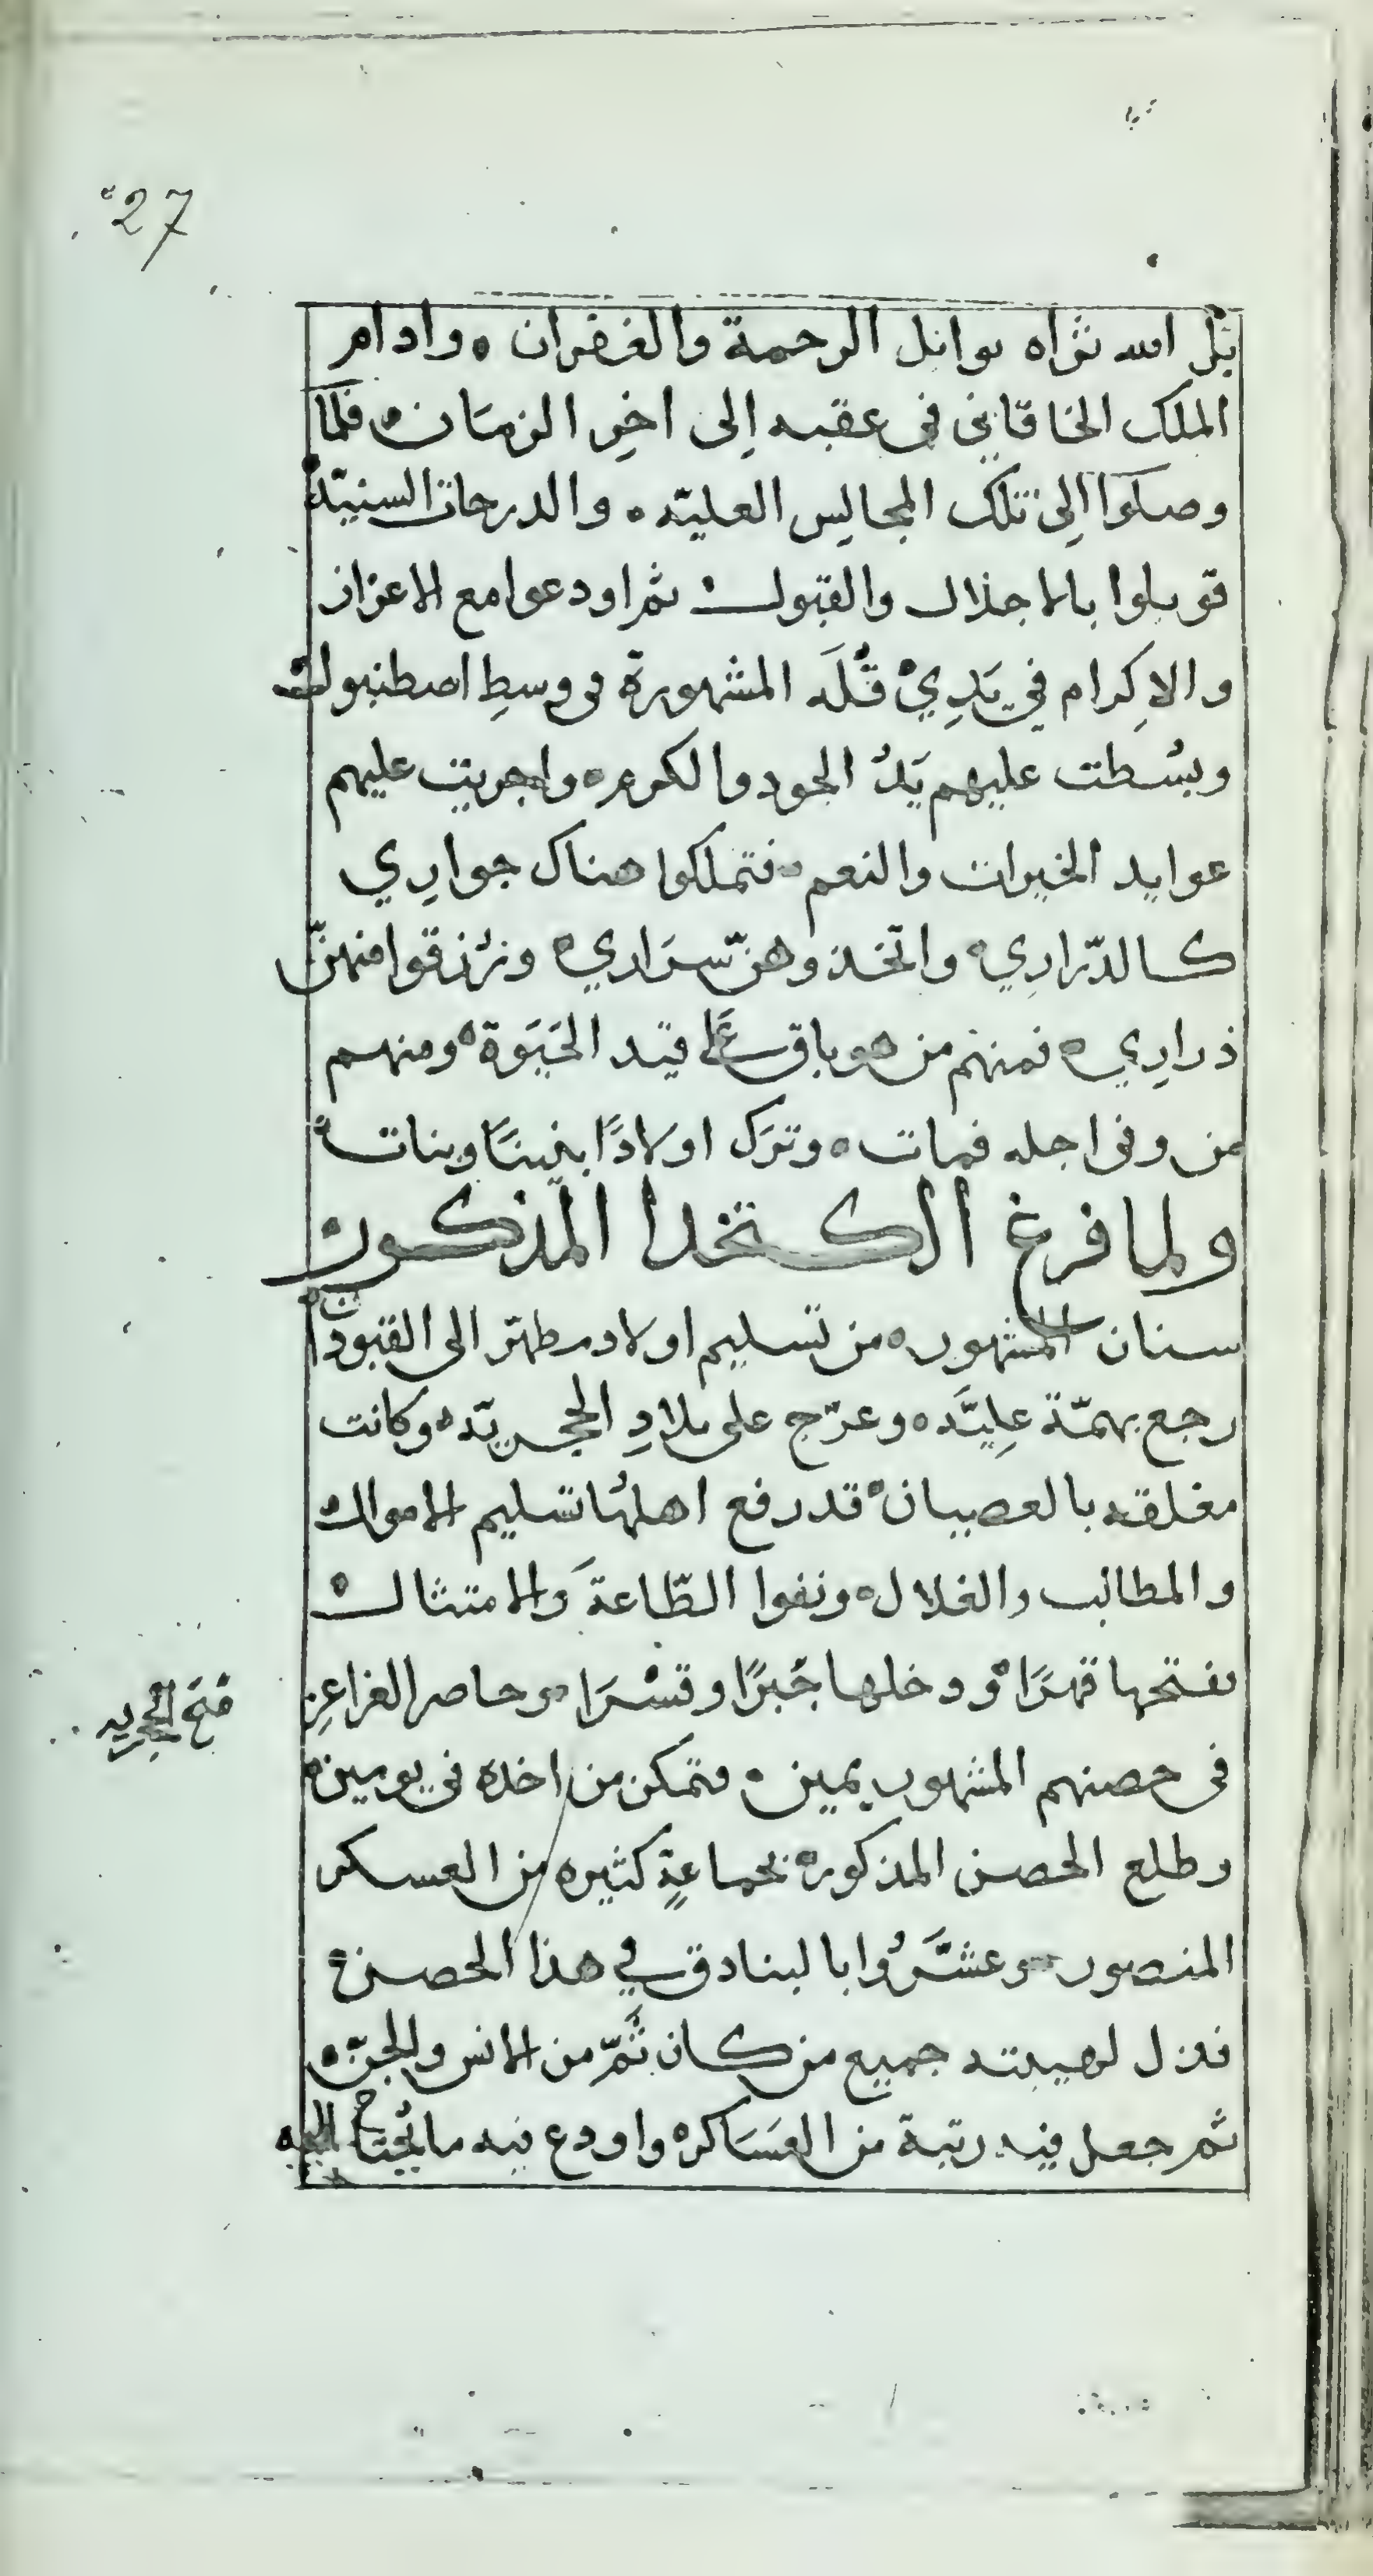 27
بلّ الله ثراه بوابل الرحمة والغفران ۰ وادام
الملك الخاقاني في عقبه إلى اخرِ الزمَان ۰ فلمّا
وصلوا الِى تلك المجالِس العليّه ۰ والدرجات السنيّة
قوبلوا بالاجلال والقبول ۰ ثم اودعوا مع الاعزاز
والاكِرام في يَدِيْ قُلَه المشهورة في وسطِ اصطنبول ۰
وبسُطت عليهم يَدُ الجود والكرم ۰ واجريت عليهم
عوايد الخيرات والنعم ۰ فتملكوا هناك جوارِي
كالدّرارِي ۰ واتّخذوهنّ سرَاري ۰ ورُزقوا منهنّ
ذرارِي ۰ فمنهم من هو باق علَى قيد الحَيَوة ۰ ومنهم
من وفى اجله فمات ۰ وترك اولادًا بنينًا وبنات ۰
ولما فرغ الكتخدا المذكور ۰
سنان المشهور ۰ من تسليم اولاد مطهر الى القبودان ۰
رجع بهمّة عِليَّه ۰ وعرّج على بلادِ الحجريّه ۰ وكانت
مغلقه بالعصيان ۰ قد رفع اهلهُا تسليم الاموال
والمطالب والغلال ۰ ونفوا الطّاعةَ والامتثال ۰
ففتحها قهرًا ۰ ودخلها جَبرًا وقسْرَا ۰ وحاصر الفراعِن
فتح الحجريه
في حصنهم المشهور بيمين ۰ فتمكن من اخذه في يومين ۰
وطلع الحصن المذكور ۰ بجماعةٍ كثيره من العسكر
المنصور ۰ وعشَّرُوا بالبنادق في هذا الحصن ۰
فنزل لهيبته جميع من كان ثَمّ من الانس والجنّ ۰
ثم جعل فيه رتبة من العسَاكر ۰ واودع فيه ما يُحتاج اليه